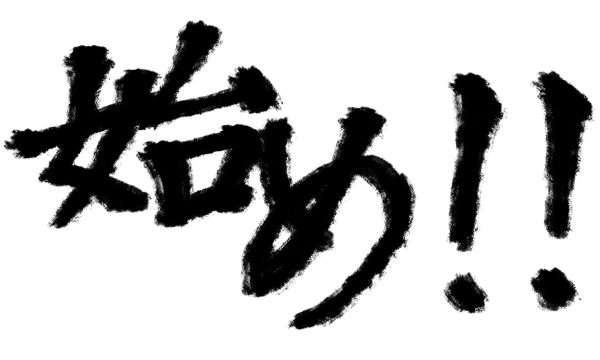 始め!!